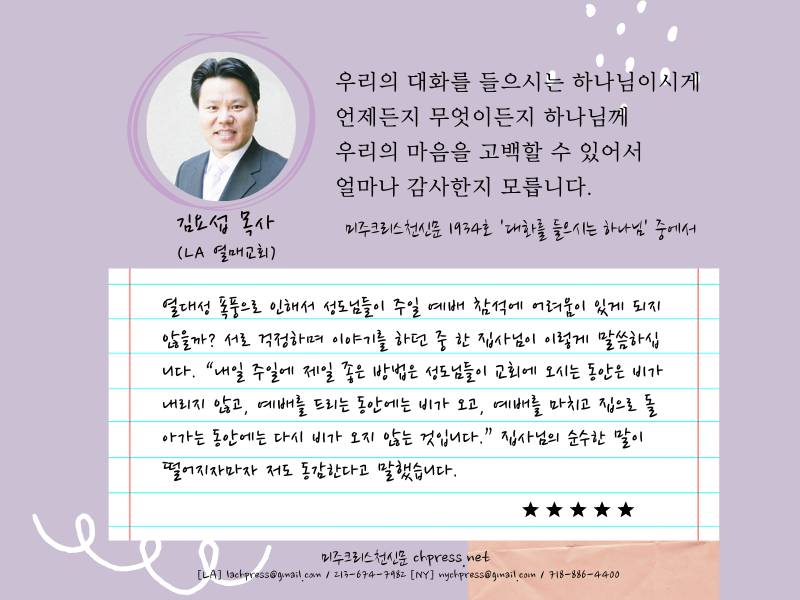 우리의 대화를 들으시는 하나님이시게
언제든지 무엇이든지 하나님께
우리의 마음을 고백할 수 있어서
얼마나 감사한지 모릅니다.
미주크리스천신문 1934호 '대화를 들으시는 하나님' 중에서
김요섭 목사
(LA 열매교회)
열대성 폭풍으로 인해서 성도님들이 주일 예배 참석에 어려움이 있게 되지
않을까? 서로 걱정하며 이야기를 하던 중 한 집사님이 이렇게 말씀하십
니다. “내일 주일에 제일 좋은 방법은 성도님들이 교회에 오시는 동안은 비가
내리지 않고, 예배를 드리는 동안에는 비가 오고, 예배를 마치고 집으로 돌
아가는 동안에는 다시 비가 오지 않는 것입니다.” 집사님의 순수한 말이
떨어지자마자 저도 동감한다고 말했습니다.
★★★★★
미주크리스천신문 chpress.net
[LA] lachpress@gmail.com / 213-674-7982 [NY] nychpress@gmail.com / 718-886-4400